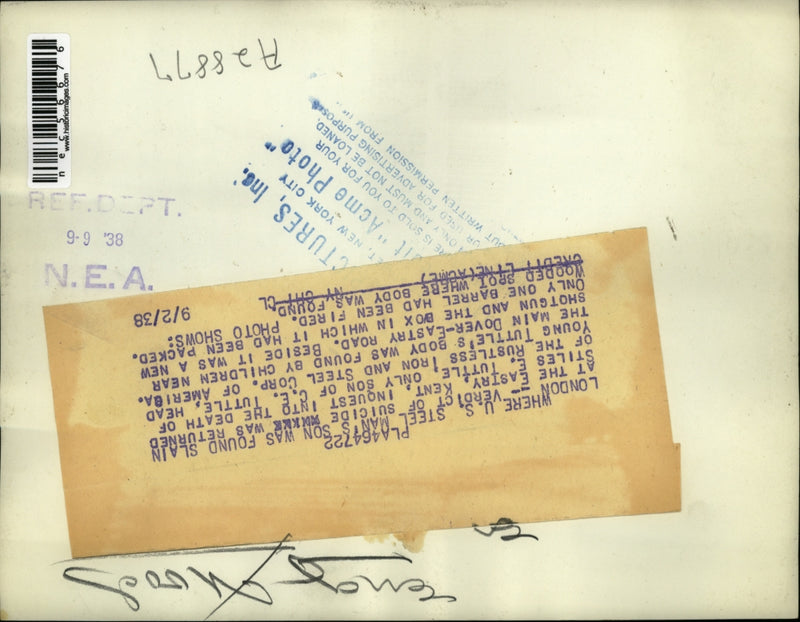 nec56676
www.historicimages.com
A28877
REF. DEPT.
9-9 '38
N.E.A.
CTURES, Inc.
NEW YORK CITY
"Acme Photo"
RE IS SOLD TO YOU FOR YOUR
ONLY AND MUST NOT BE LOANED,
OR USED FOR ADVERTISING PURPOSES
OUT WRITTEN PERMISSION FROM
PLA464722
WHERE U.S. STEEL MAN'S SON WAS FOUND SLAIN
LONDON -- VERDICT OF SUICIDE WAS RETURNED
AT THE EASTRY, KENT, INQUEST INTO THE DEATH OF
STILES E. TUTTLE, ONLY SON OF C.E. TUTTLE, HEAD
OF THE RUSTLESS IRON AND STEEL CORP. OF AMERICA.
YOUNG TUTTLE'S BODY WAS FOUND BY CHILDREN NEAR
THE MAIN DOVER-EASTRY ROAD. BESIDE IT WAS A NEW
SHOTGUN AND THE BOX IN WHICH IT HAD BEEN PACKED.
ONLY ONE BARREL HAD BEEN FIRED. PHOTO SHOWS:
WOODED SPOT WHERE BODY WAS FOUND.
CREDIT LINE(ACME) NY CHI CL 9/2/38